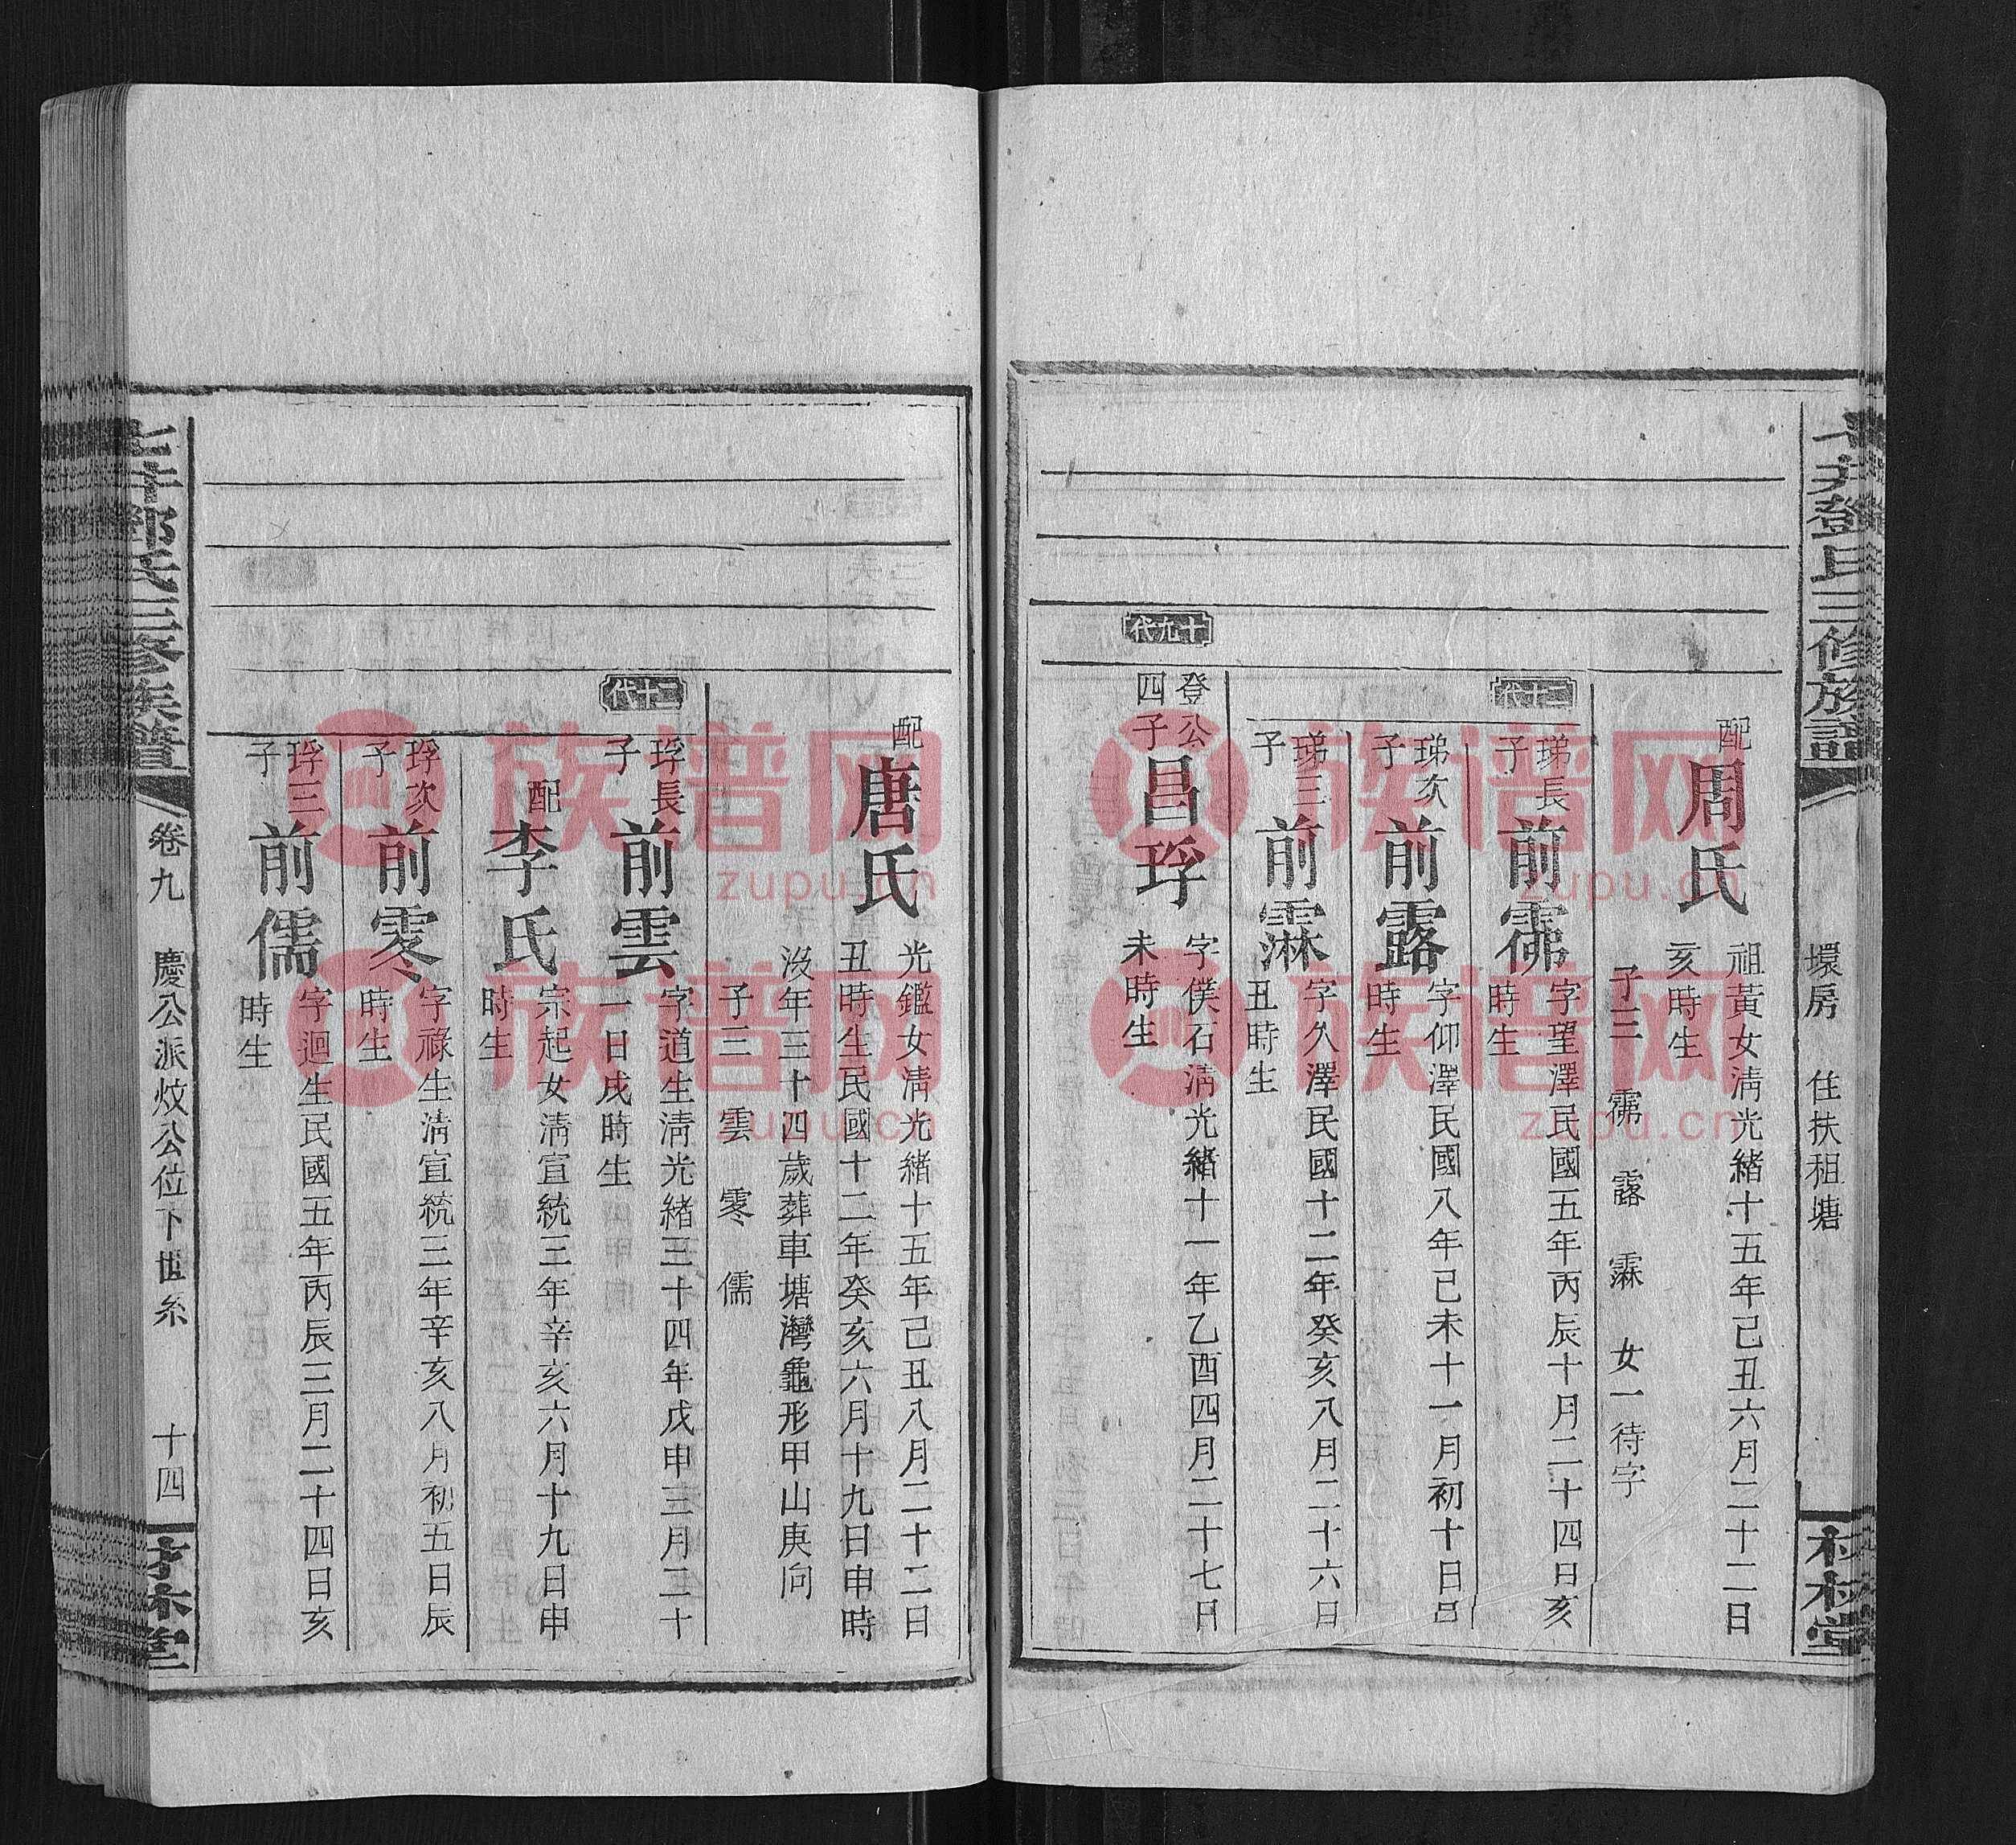 鄧氏三修族譜
環房 住扶祖塘
配
周氏
祖黃女淸光緒十五年己丑六月二十二日
亥時生
子三 霈 露 霖 女一待字
二十代
珶長
子
前霈
字望澤民國五年丙辰十月二十四日亥
時生
珶次
子
前露
字仰澤民國八年己未十一月初十日
時生
珶三
子
前霖
字久澤民國十二年癸亥八月二十六日
丑時生
十九代
登公
四子
昌琈
字僕石淸光緒十一年乙酉四月二十七日
未時生
配
唐氏
光鑑女淸光緒十五年己丑八月二十二日
丑時生民國十二年癸亥六月十九日申時
沒年三十四歲葬車塘灣龜形甲山庚向
子三 雲 零 儒
二十代
琈長
子
前雲
字道生淸光緒三十四年戊申三月二十
一日戌時生
配
李氏
宗起女淸宣統三年辛亥六月十九日申
時生
琈次
子
前零
字祿生淸宣統三年辛亥八月初五日辰
時生
琈三
子
前儒
字迴生民國五年丙辰三月二十四日亥
時生
七井鄧氏三修族譜
卷九 慶公派炆公位下世系 十四
族谱网
zupu.cn
族谱网
zupu.cn
族谱网
zupu.cn
族谱网
zupu.cn